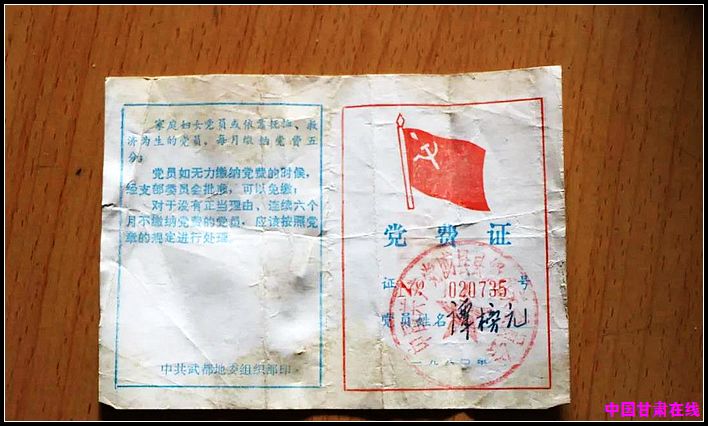 家庭妇女党员或依靠抚恤、救
济为生的党员，每月缴纳党费五
分；
党员如无力缴纳党费的时候，
经支部委员会批准，可以免缴；
对于没有正当理由、连续六个
月不缴纳党费的党员，应该按照党
章的规定进行处理。
中共武都地委组织部印
党费证
证 № 020735 号
党员姓名 谭榜元
中国甘肃在线